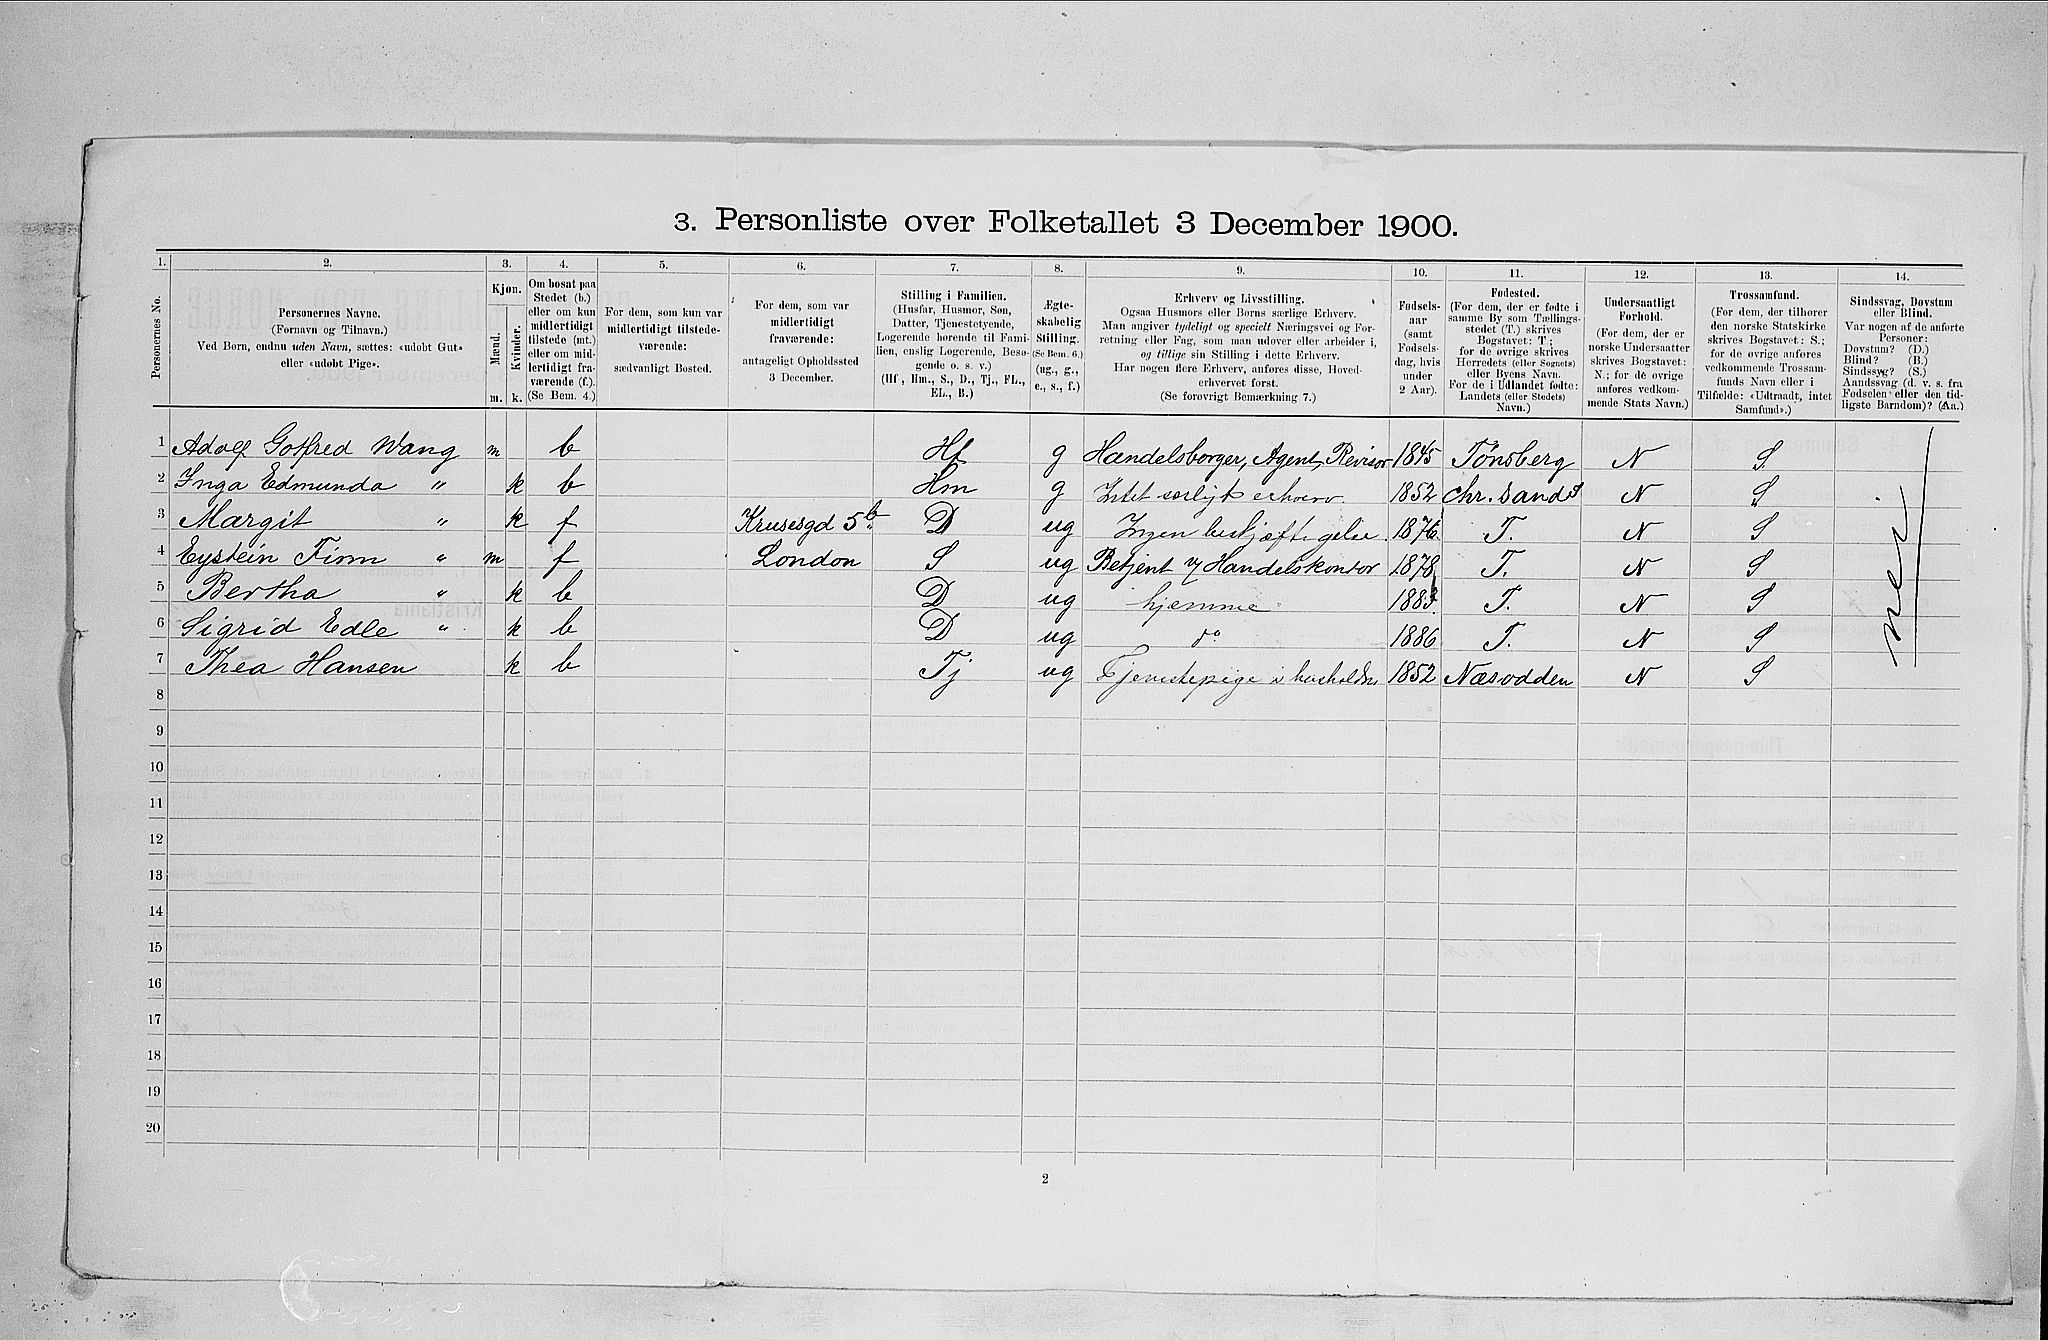 3. Personliste over Folketallet 3 December 1900.
1. 2. 3. 4. 5. 6. 7. 8. 9. 10. 11. 12. 13. 14.
Personernes No.
Personernes Navne.
(Fornavn og Tilnavn.)
Ved Børn, endnu uden Navn, sættes: «udøbt Gut»
eller «udøbt Pige».
Kjøn.
Mænd.
Kvinder.
m. k.
Om bosat paa
Stedet (b.)
eller om kun
midlertidigt
tilstede (mt.)
eller om mid-
lertidigt fra-
værende (f.).
(Se Bem. 4.)
For dem, som kun var
midlertidigt tilstede-
værende:
sædvanligt Bosted.
For dem, som var
midlertidigt
fraværende:
antageligt Opholdssted
3 December.
Stilling i Familien.
(Husfar, Husmor, Søn,
Datter, Tjenestetyende,
Logerende hørende til Fami-
lien, enslig Logerende, Besø-
gende o. s. v.)
(Hf, Hm., S., D., Tj., FL.,
EL., B.)
Ægte-
skabelig
Stilling.
(Se Bem. 6.)
(ug., g.,
e., s., f.)
Erhverv og Livsstilling.
Ogsaa Husmors eller Børns særlige Erhverv.
Man angiver tydeligt og specielt Næringsvei og For-
retning eller Fag, som man udøver eller arbeider i,
og tillige sin Stilling i dette Erhverv.
Har nogen flere Erhverv, anføres disse, Hoved-
erhvervet først.
(Se forøvrigt Bemærkning 7.)
Fødsels-
aar
(samt
Fødsels-
dag, hvis
under
2 Aar).
Fødested.
(For dem, der er fødte i
samme By som Tællings-
stedet (T.) skrives
Bogstavet: T;
for de øvrige skrives
Herredets (eller Sognets)
eller Byens Navn.
For de i Udlandet fødte:
Landets (eller Stedets)
Navn.)
Undersaatligt
Forhold.
(For dem, der er
norske Undersaatter
skrives Bogstavet:
N.; for de øvrige
anføres vedkom-
mende Stats Navn.)
Trossamfund.
(For dem, der tilhører
den norske Statskirke
skrives Bogstavet: S.;
for de øvrige anføres
vedkommende Trossam-
funds Navn eller i
Tilfælde: «Udtraadt, intet
Samfund».)
Sindssvag, Døvstum
eller Blind.
Var nogen af de anførte
Personer:
Døvstum? (D.)
Blind? (B.)
Sindssyg? (S.)
Aandssvag (d. v. s. fra
Fødselen eller den tid-
ligste Barndom)? (Aa.)
1 Adolf Gotfred Wang m b Hf g Handelsborger, Agent, Revisor 1845 Tönsberg N S.
2 Inga Edmunda " k b Hm g Intet særligt erhverv. 1852 Chr.sands N S
3 Margit " k f Krusesgd 5b D ug Ingen beskjæftigelse. 1876 T. N S
4 Eystein Finn " m f London S ug Betjent v/ Handelskontor 1878 T. N S
5 Bertha " k b D ug hjemme 1883 T. N S
6 Sigrid Edle " k b D ug do 1886 T. N S
7 Thea Hansen k b Tj ug Tjenestepige i husholdn. 1852 Næsodden N S
8
9
10
11
12
13
14
15
16
17
18
19
20
2